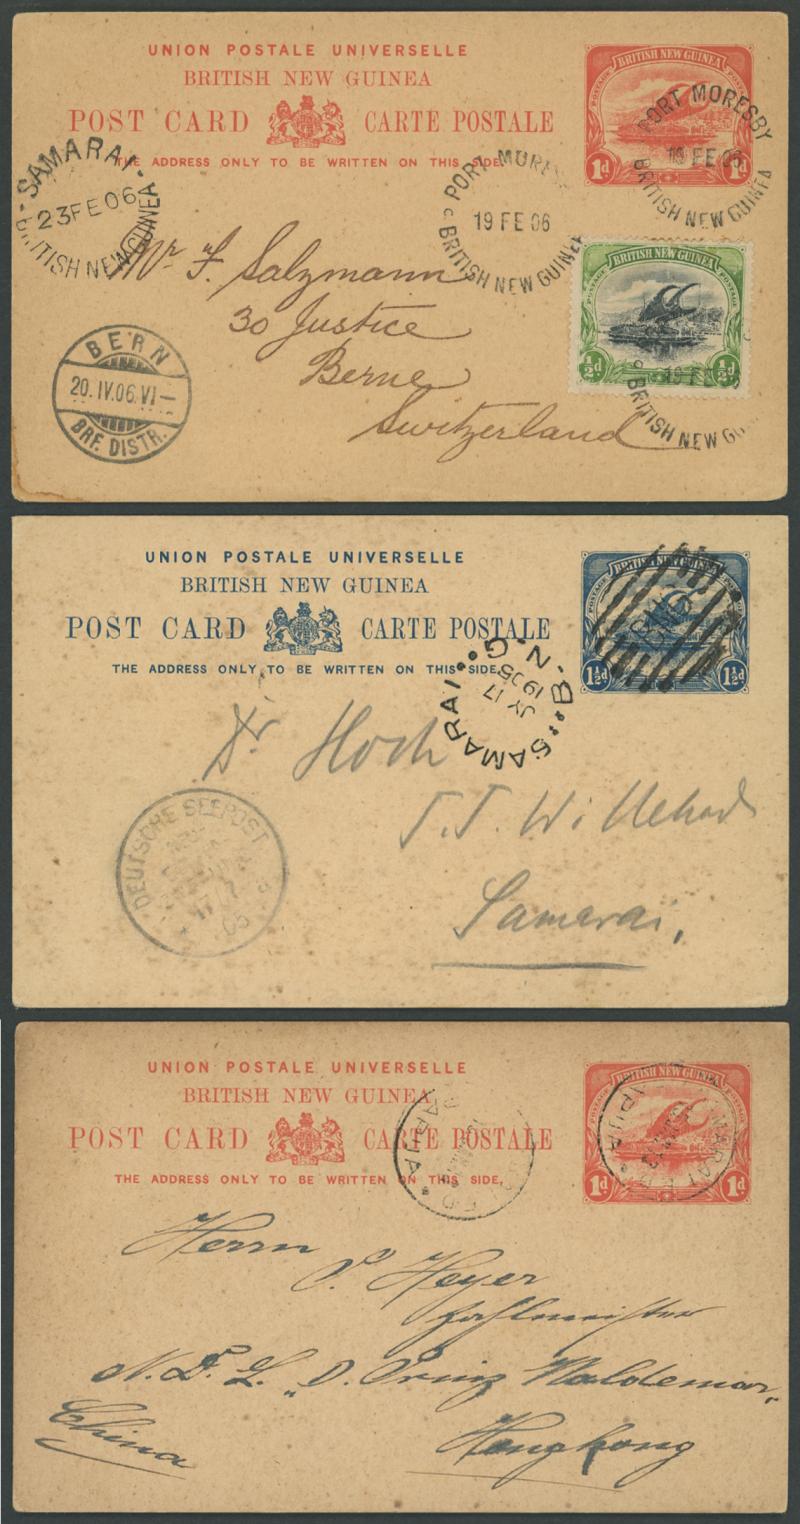 UNION POSTALE UNIVERSELLE
BRITISH NEW GUINEA
POST CARD CARTE POSTALE
THE ADDRESS ONLY TO BE WRITTEN ON THIS SIDE.
POSTAGE BRITISH NEW GUINEA POSTAGE
1d 1d
PORT MORESBY
19 FE 06
BRITISH NEW GUINEA
SAMARAI
23FE06
BRITISH NEW GUINEA
PORT MORES
19 FE 06
BRITISH NEW GUINEA
POSTAGE BRITISH NEW GUINEA POSTAGE
½d ½d
19 FE
BRITISH NEW GU
Mr F. Salzmann
30 Justice
Berne
Switzerland
BERN
20.IV.06.VI–
BRF. DISTR.
UNION POSTALE UNIVERSELLE
BRITISH NEW GUINEA
POST CARD CARTE POSTALE
THE ADDRESS ONLY TO BE WRITTEN ON THIS SIDE.
POSTAGE BRITISH NEW GUINEA POSTAGE
1½d 1½d
BNG
SAMARAI B.N.G.
JY 17
1905
Dr Hoch
Willehad
Samarai,
DEUTSCHE SEEPOST
17/7
05
UNION POSTALE UNIVERSELLE
BRITISH NEW GUINEA
POST CARD CARTE POSTALE
THE ADDRESS ONLY TO BE WRITTEN ON THIS SIDE.
POSTAGE BRITISH NEW GUINEA POSTAGE
1d 1d
PAPUA
PAPUA
Herrn
P. Heyer
Zahlmeister
N.D.L. „D. Prinz Waldemar"
Hongkong
China